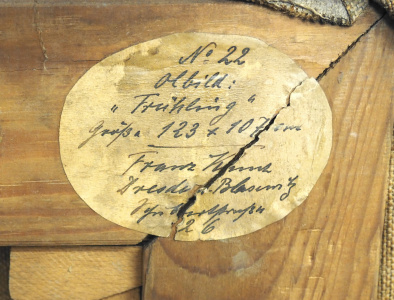 No 22
Ölbild:
„Frühling"
Größe 123 x 107 cm
Franz
Dresden Blasewitz
26